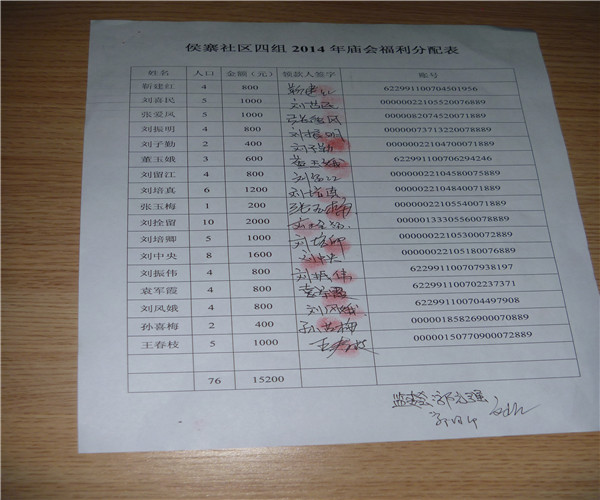 侯寨社区四组 2014 年庙会福利分配表
姓名 人口 金额（元） 领款人签字 账号
靳建红 4 800 靳建红 622991100704501956
刘喜民 5 1000 刘喜民 00000022105520076889
张爱凤 5 1000 张爱凤 00000082074520071889
刘振明 4 800 刘振明 00000073713220078889
刘子勤 2 400 刘子勤 00000022104700071889
董玉娥 3 600 董玉娥 622991100706294246
刘留江 4 800 刘留江 00000022104580075889
刘培真 6 1200 刘培真 00000022104840071889
张玉梅 1 200 张玉梅 00000022105540071889
刘拴留 10 2000 00000133305560078889
刘培卿 5 1000 刘培卿 00000022105300072889
刘中央 8 1600 刘中央 00000022105180076889
刘振伟 4 800 刘振伟 622991100707938197
袁军霞 4 800 袁军霞 622991100702237371
刘风娥 4 800 刘风娥 622991100704497908
孙喜梅 2 400 孙喜梅 00000018582690007​0889
王春枝 5 1000 王春枝 00000150770900072889
76 15200
监委会